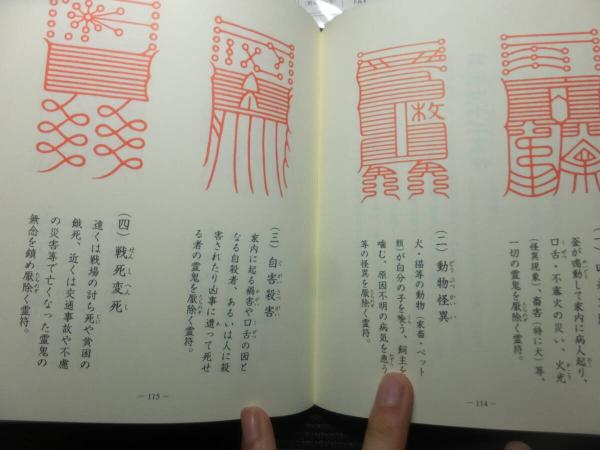 釜が鳴動して家内に病人起り、
口舌・不審火の災い、火光
(怪異現象)、畜害(特に犬)等、
一切の霊鬼を厭除く霊符。
(二) 動物怪異
犬・猫等の動物(家畜・ペット
類)が自分の子を喰う、飼主を
噛む、原因不明の病気を患う
等の怪異を厭除く霊符。
枚
— 114 —
(三) 自害殺害
家内に起る禍害や口舌の因と
なる自殺者、あるいは人に殺
害されたり凶事に遭って死せ
る者の霊鬼を厭除く霊符。
(四) 戦死変死
遠くは戦場の討ち死や貧困の
餓死、近くは交通事故や不慮
の災害等で亡くなった霊鬼の
無念を鎮め厭除く霊符。
— 115 —